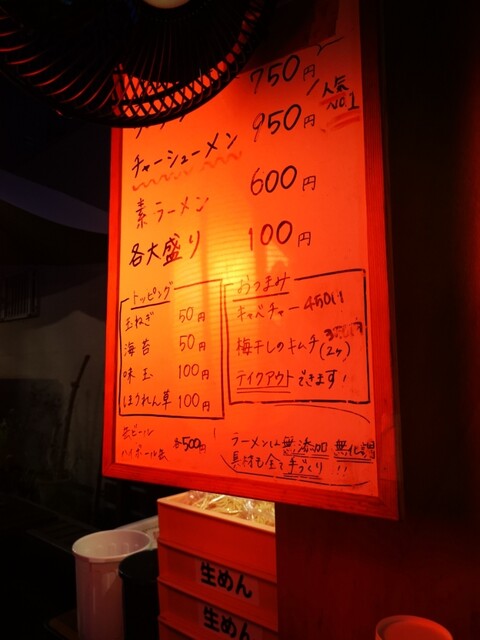 750円
人気
No.1
チャーシューメン 950円
素ラーメン 600円
各大盛り 100円
トッピング
玉ねぎ 50円
海苔 50円
味玉 100円
ほうれん草 100円
おつまみ
キャベチャー 450円
梅干しのキムチ (2ヶ)
テイクアウトできます!
生ビール
ハイボール 各500円
ラーメンは無添加 無化調
具材も全て手づくり!!
生めん
生めん